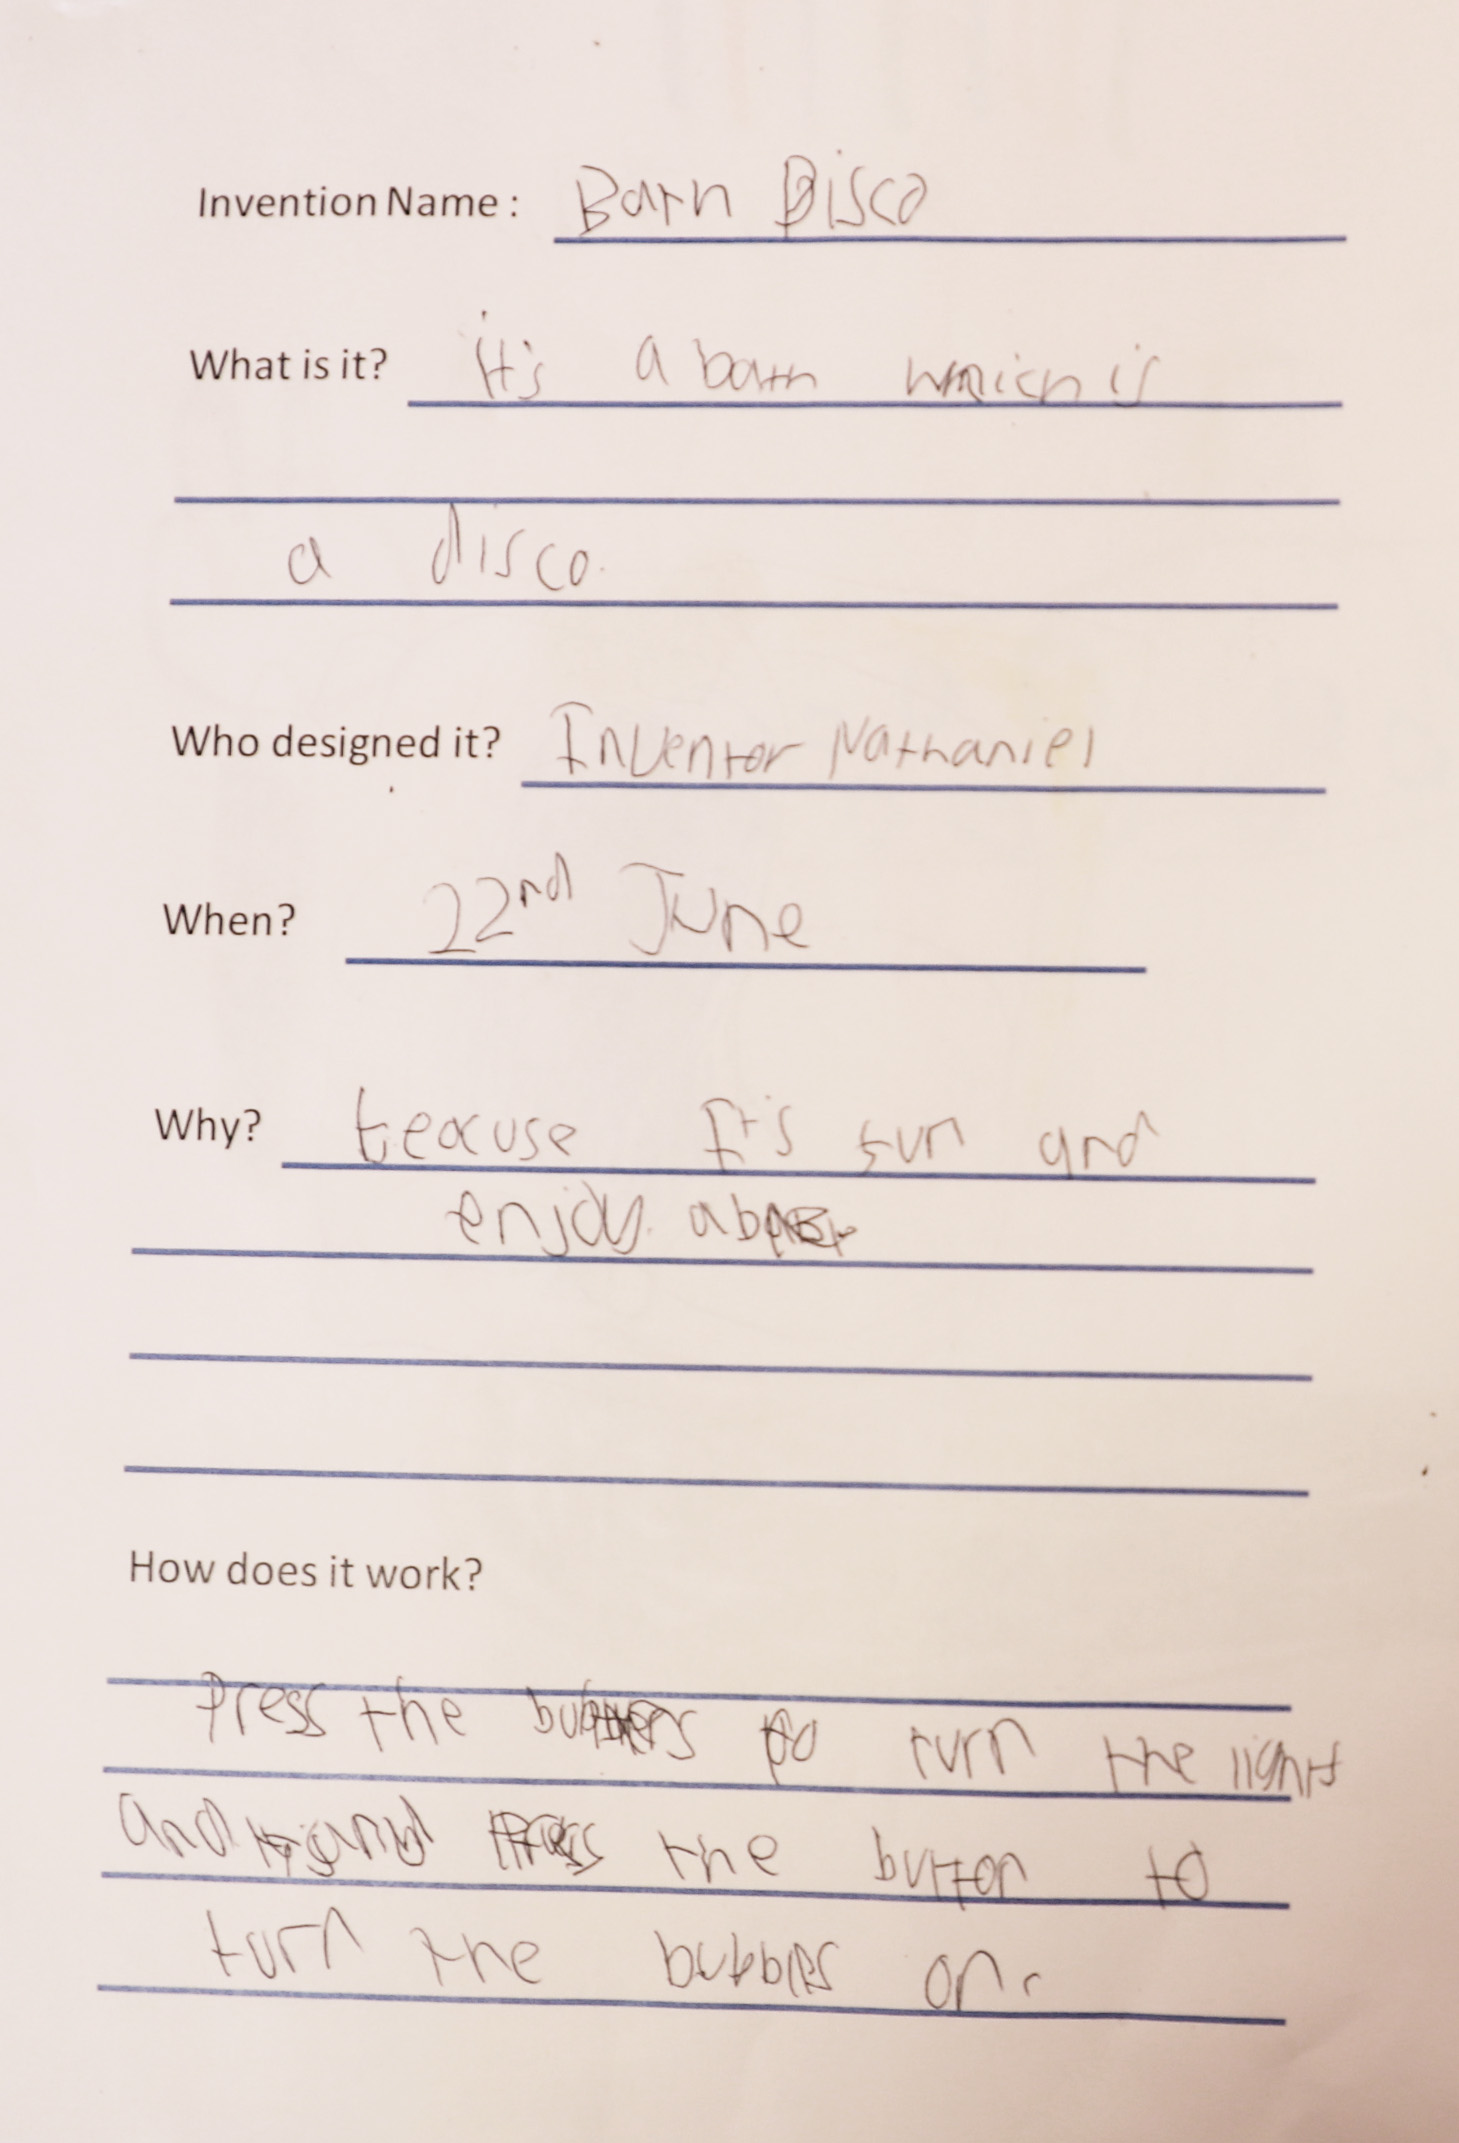 Invention Name : Barn Disco
What is it? it's a barn which is
a disco.
Who designed it? Inventor Nathaniel
When? 22nd June
Why? becuse It's fun and
enjoy.
How does it work?
Press the buttons to turn the lights
and Press the button to
turn the bubbles on.